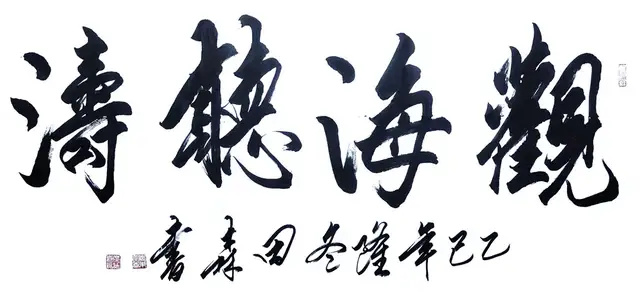 觀海聽濤
乙巳年隆冬田森書